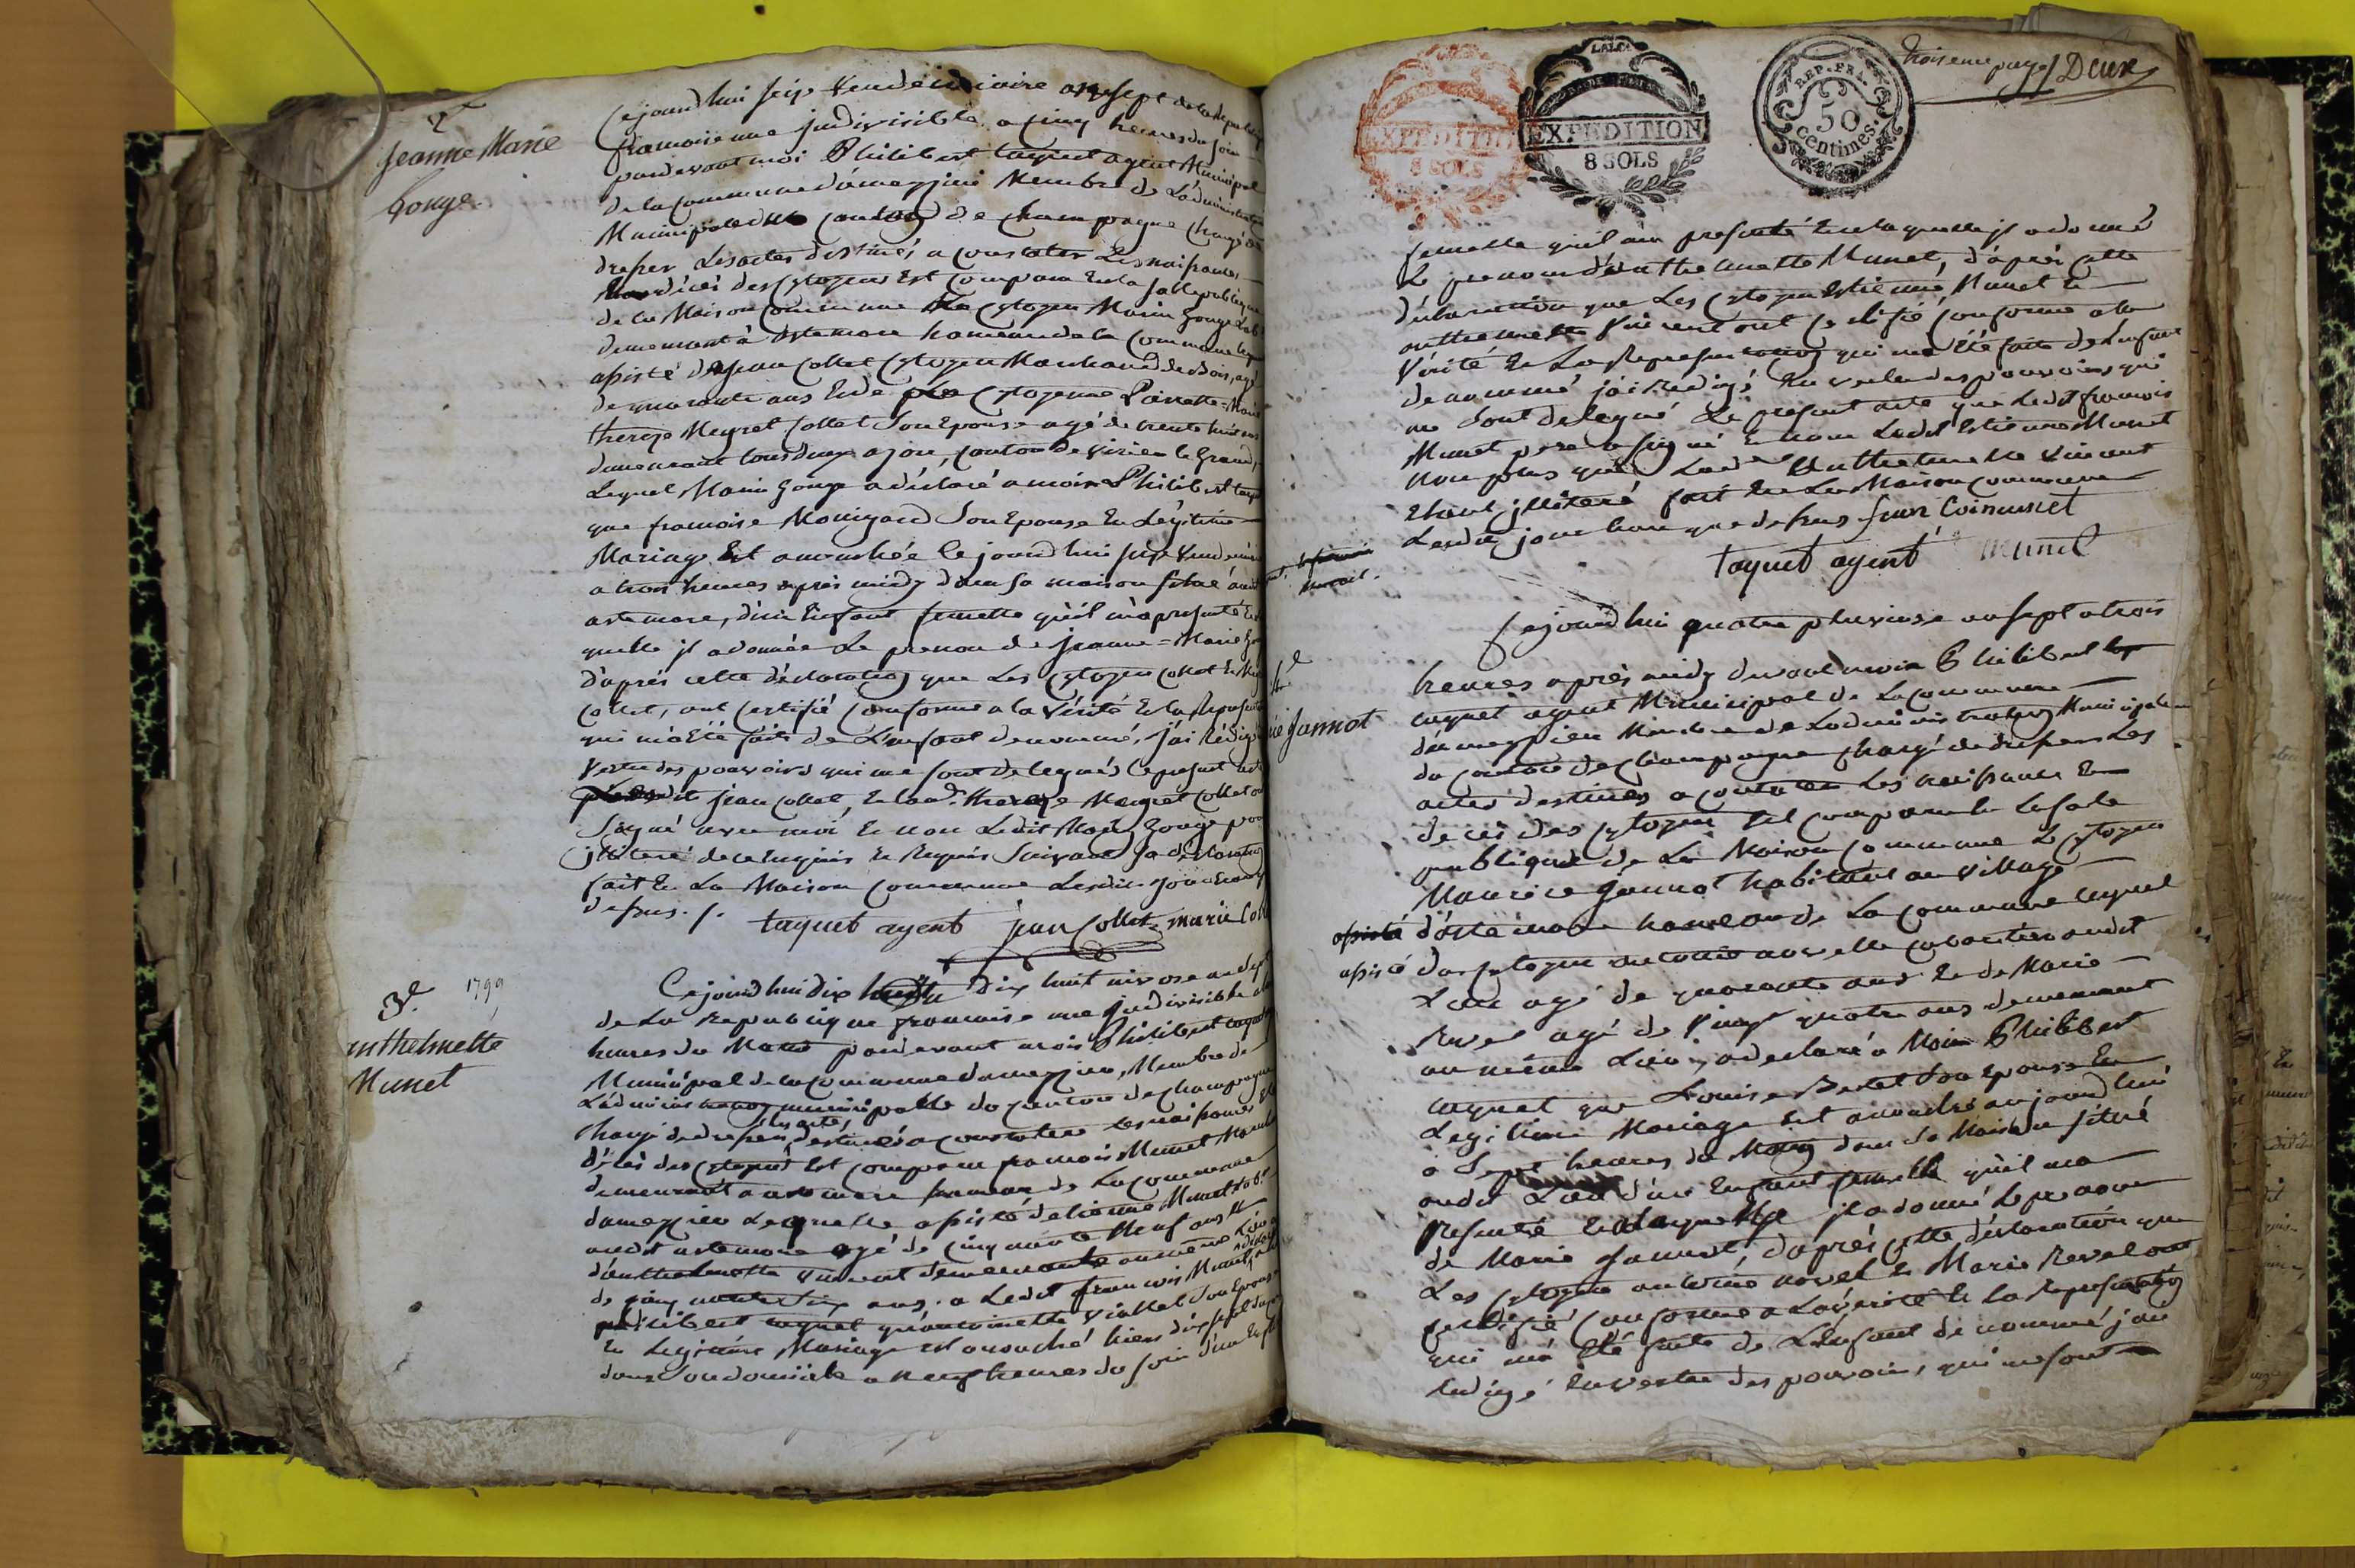 2e
Jeanne Marie
Gonge.
Cejourdhui seize Vendémiaire an sept de la Republiq
francoise une jndivisible a cinq heures du soir
pardevant moi Philibert taquet agent Municipal
de la commune d'amezzieu Membre de L'administration
Municipalle du canton de champagne chargé de
dresser Les actes destinés a constater Les naissances
décés des cytoyens Est comparu En la salle publique
de la Maison commune Le cytoyen Marin Gonge Lab
demeurant à artemare hameau de la commune
assisté de jean Collet cytoyen Marchand de Bois, agé
de quarante ans Et de La cytoyenne Pierrette=Marie
thereze Meyret Collet Son Epouse agé de trente huit ans
demeurant tous deux a jon, canton de Virieu le Grand,
Lequel Marin Gonge a déclaré a moi Philibert taqu
que francoise Son Epouse En Légitime
Mariage Est accouchée Ce jourd'hui seize Vendemiai
a trois heures après midy dans sa maison située audit
artemare, d'un Enfant femelle qu'il m'a présenté Et
quelle jl a donnée Le prenom de jeanne=Marie Gon
d'après cette déclaration que Les cytoyen Collet Et
Collet, ont certifié conforme a la Vérité Et la Représent
qui m'a Eté faite de L'enfant denommé, j'ai Rédigé
Vertu des pouvoirs qui me sont delegués Le présent acte
jean Collet, Et lad. thereze Meyret Collet on
Signé avec moi Et non Ledit Marin Gonge pou
jlliteré de ce Enquis Et Requis Suivant sa déclaration
fait En La Maison commune Lesdits jour Et an q
dessus ./. taquet agent jean Collet marie Coll
3e. 1799
anthelmette
Munet
Cejourdhui dix dix huit nivose an sept
de La Republique francoise une jndivisible a
heures du Matin pardevant moi Philibert taquet
Municipal de la commune damezzieu, Membre de
L'administration municipalle du canton de champagne
chargé de dresser Les actes destinés a constater Les naissances Et
décès des cytoyens Est comparu francois Munet
demeurant a artemare hameau de La commune
damezzieu Lequel assisté detienne Munet Labr
audit artemare agé de cinquante Neuf ans Et
d'anthelmette Vincent demeurante au même Lieu
de cinq ans. a Ledit francois Munet, a déclaré
philibert taquet qu'antoinette Viallet Son Epouse
En Legitime Mariage est accouché hiers dix sept du
dans Son domicile a Neuf heures du soir d'un Enfan
troisieme page / Deux
EXPEDITION
8 SOLS
EXPEDITION
8 SOLS
REP. FRA.
50
centimes.
femelle qu'il m'a presenté Et a laquelle jl a donné
Le prenom d'anthelmette Munet, d'après cette
déclaration que Les cytoyen Estienne Munet Et
anthelmette Vincent ont certifié conforme a la
Vérité Et La Représentation qui ma Eté faite de L'enfant
denommé j'ai Redigé En vertu des pouvoirs qui
me sont delegué Le présent acte que Ledit francois
Munet pere a signé Et non Ledit Estienne Munet
non plus que Lade anthelmette Vincent
Etant jlliteré fait En La Maison commune
Lesdits jour
taquet agent munet
Cejourdhui quatre pluviose an sept a trois
heures après midy devant moi Philibert
taquet agent Municipal de La commune
damezzieu Membre de Ladministration Municipale
du canton de champagne chargé de dresser Les
actes destinés a constater Les naissances Et
décés des cytoyens Est comparu En La salle
publique de La Maison commune Le cytoyen
Maurice jannot habitant au Village
4e
ie Jannot
d'artemare hameau de La commune Lequel
assisté du cytoyen antoine novelle cabaretier audit
Lieu agé de quarante ans Et de Marie
Revel agé de Vingt quatre ans demeurant
au même Lieu, a déclaré a Moi Philibert
taquet que Louise Son Epouse En
Legitime Mariage Est accouché aujourd'hui
a Sept heures du Matin dans sa Maison situé
audit Lieu d'un Enfant femelle qu'il ma
presenté Et a laquelle jl a donné Le prenom
de Marie Jannot, d'après cette déclaration que
Les cytoyens antoine novel Et Marie Revel ont
certifié conforme a La vérité Et La Représentation
qui m'a Eté faite de L'Enfant denommé j'ai
Redigé En vertu des pouvoirs, qui me sont